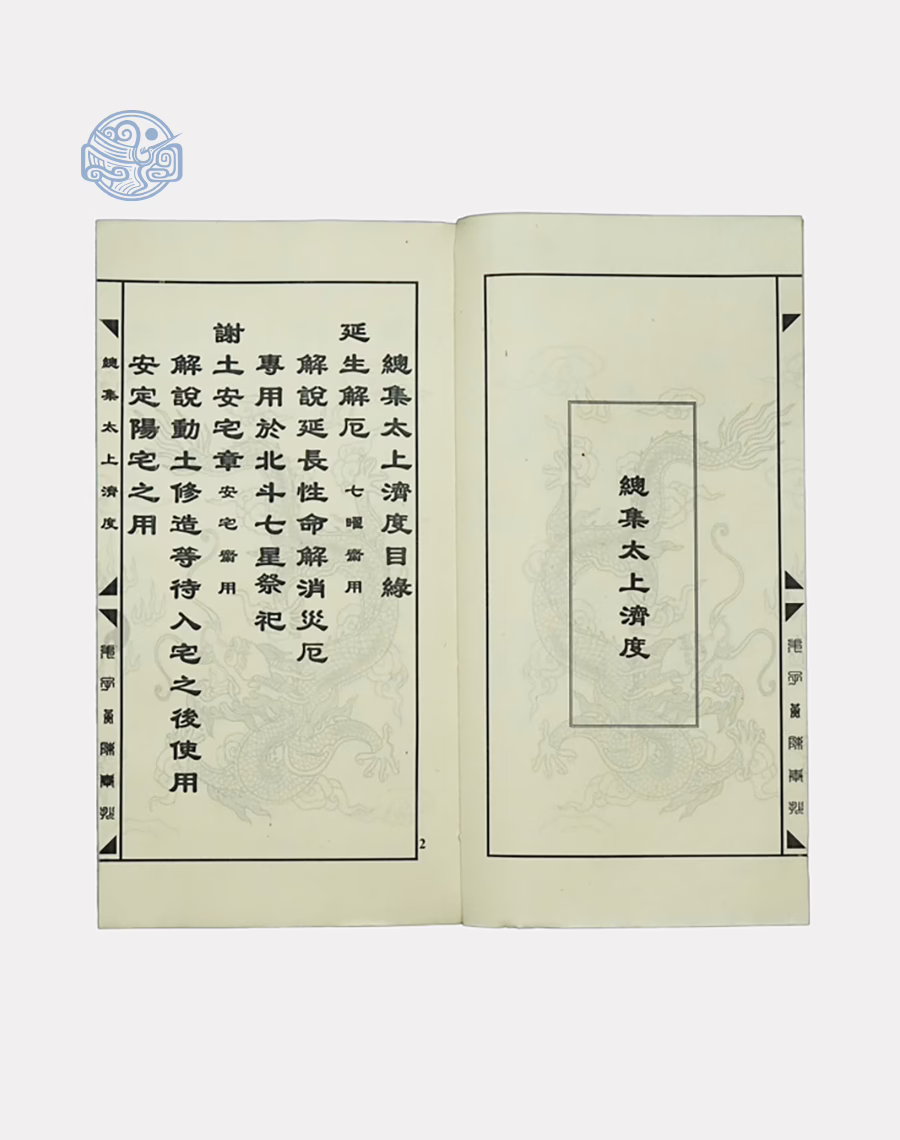 總集太上濟度
總集太上濟度目緣
延生解厄 七曜齋用
解說延長性命解消災厄
專用於北斗七星祭祀
謝土安宅章 安宅齋用
解說動土修造等待入宅之後使用
安定陽宅之用
總集太上濟度
2